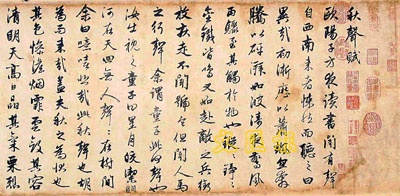 秋聲賦
歐陽子方夜讀書聞有聲
自西南來者悚然而聽之曰
異哉初淅瀝以蕭颯忽奔
騰以砰湃如波濤夜驚風
雨驟至其觸於物也鏦〻錚〻
金鐵皆鳴又如赴敵之兵銜
枚疾走不聞號令但聞人馬
之行聲余謂童子此何聲也
汝出視之童子曰星月皎潔明
河在天四無人聲〻在樹間
余曰噫嘻悲哉此秋聲也胡
為而來哉蓋夫秋之為狀也
其色慘澹煙霏雲斂其容
清明天高日晶其氣栗